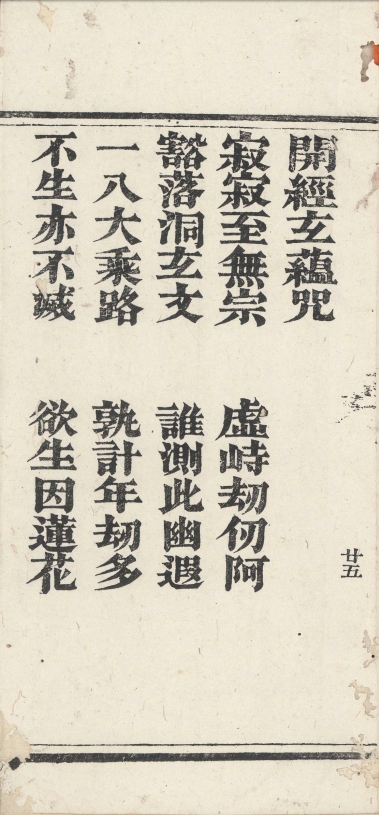 開經玄蘊咒
寂寂至無宗　虛峙劫仞阿
豁落洞玄文　誰測此幽遐
一八大乘路　孰計年劫多
不生亦不滅　欲生因蓮花
廿五